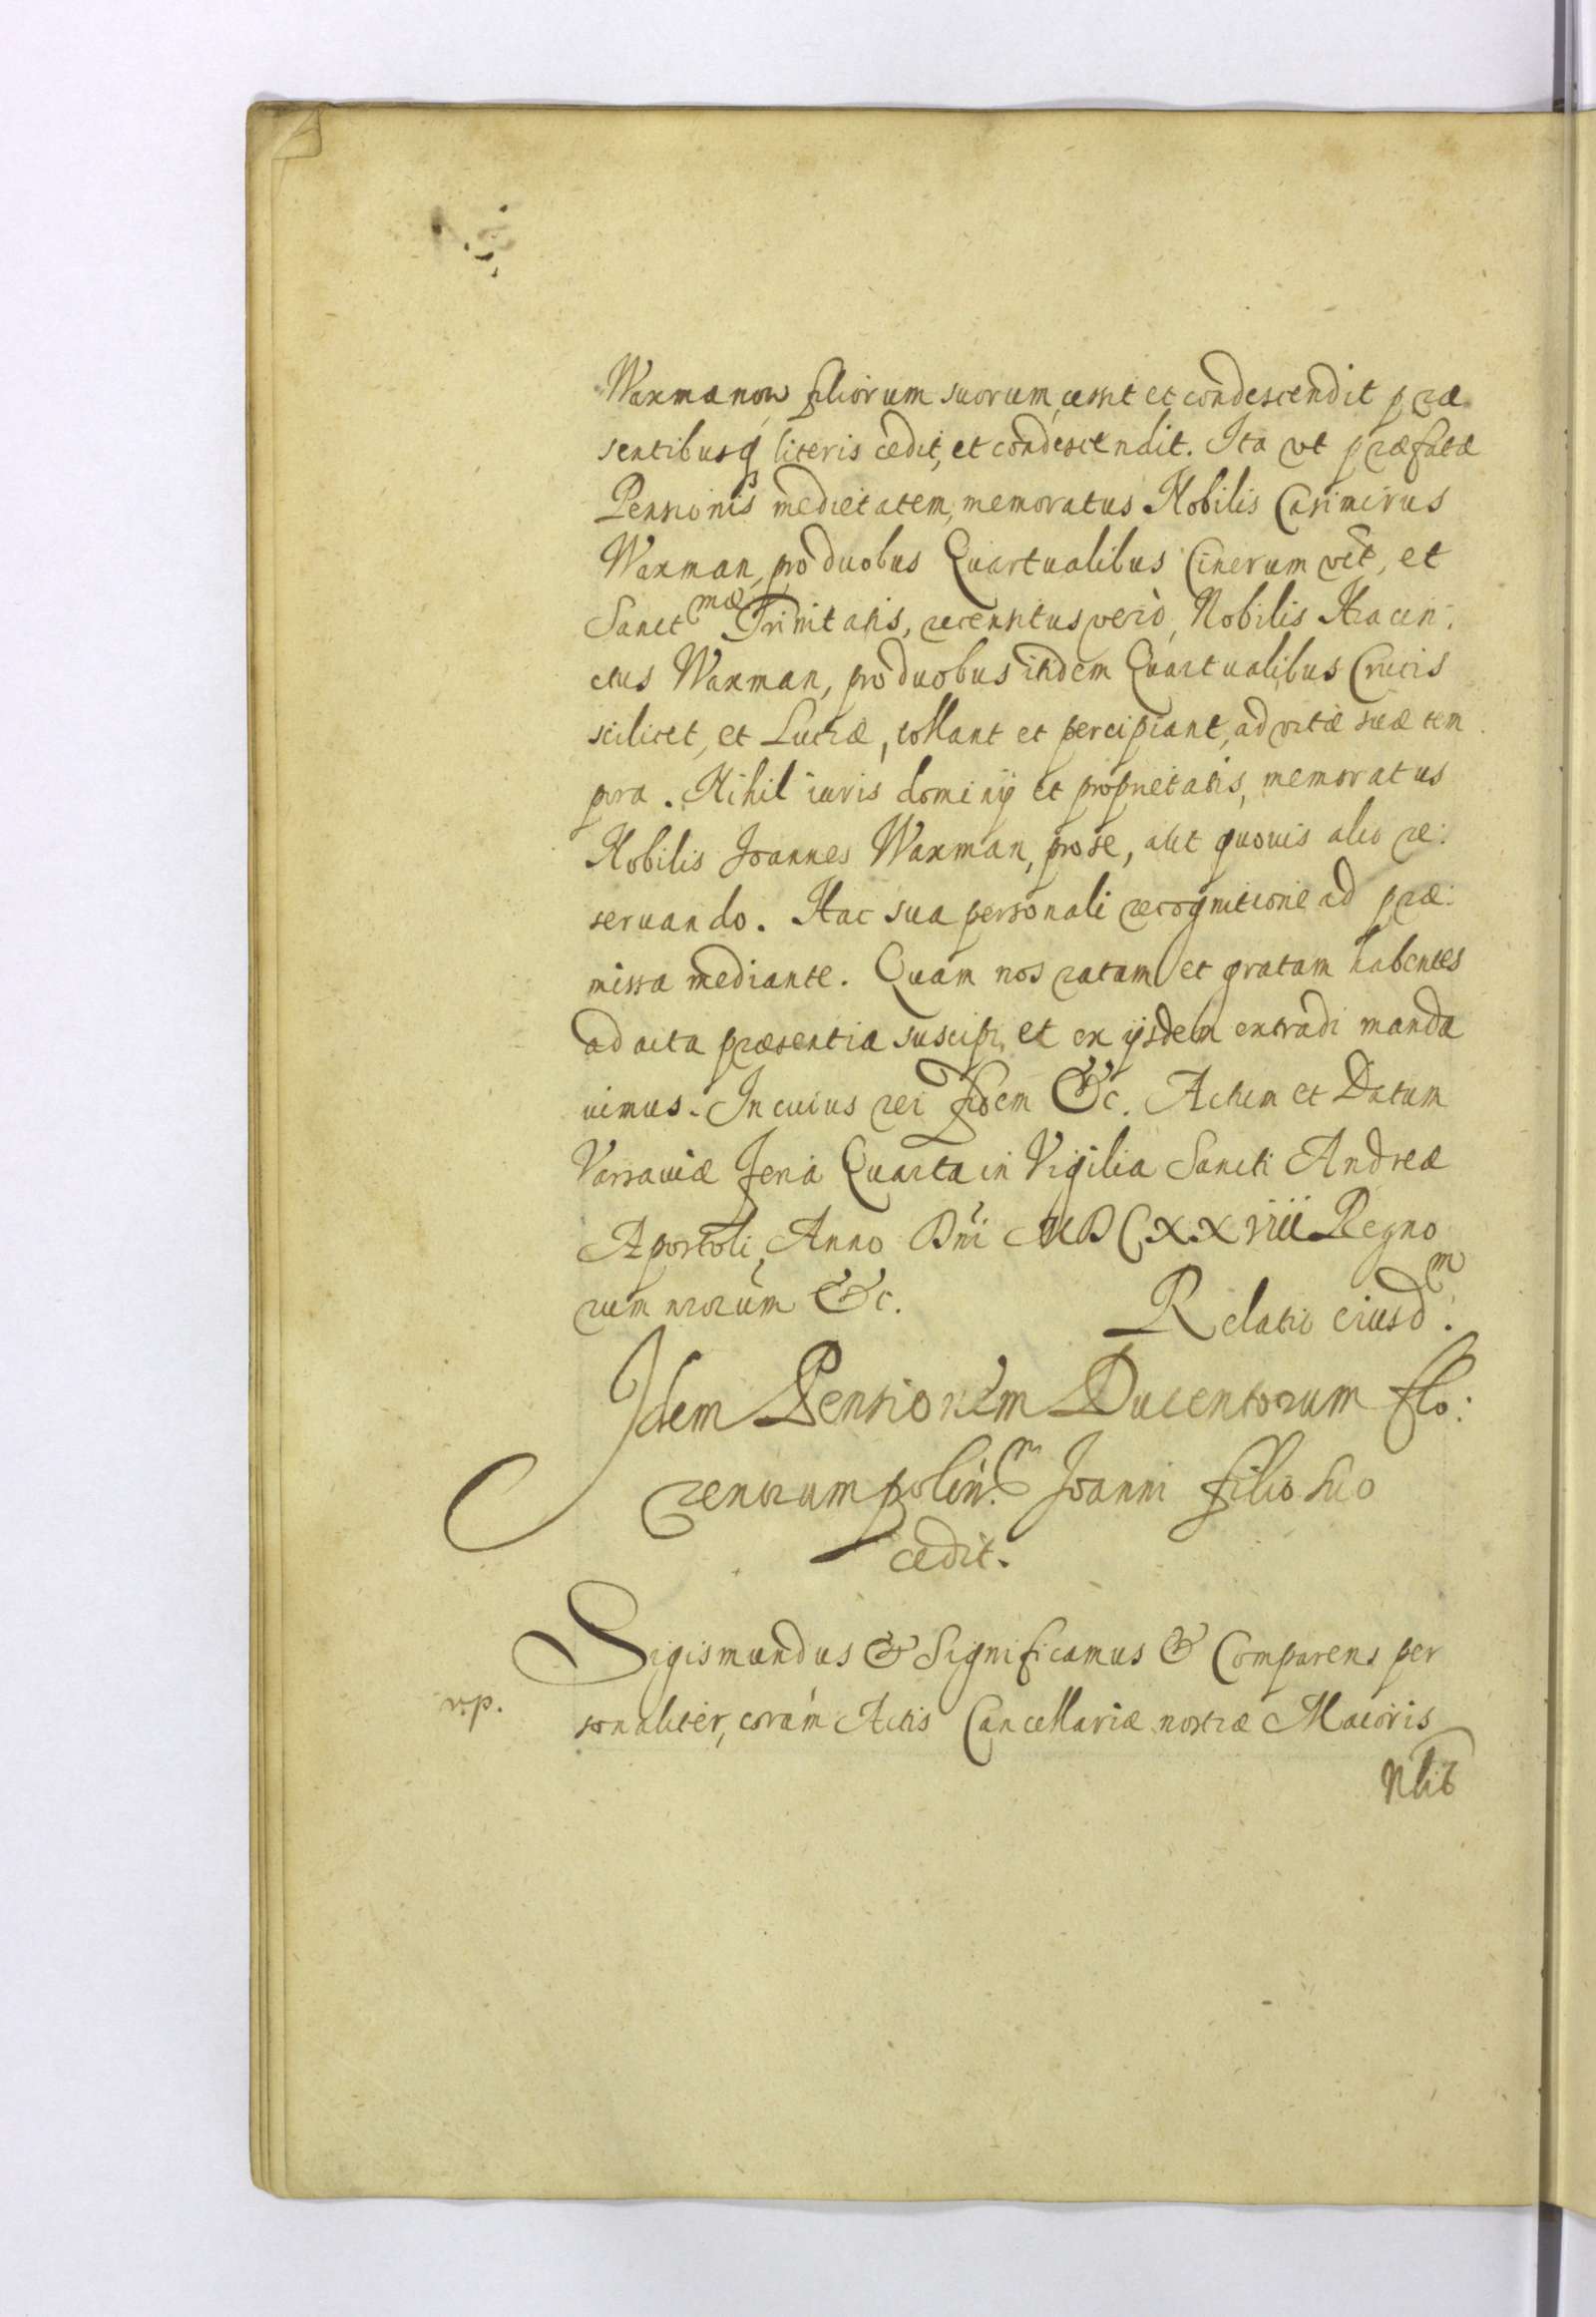 Waxmanow filiorum suorum, cessit et condescendit præ
sentibusq literis cedit, et condescendit. Ita vt præfatæ
Pensionis medietatem, memoratus Nobilis Casimirus
Waxman, pro duobus Quartualibus Cinerum vēt, et
Sanct mæ Trinitatis, recensitus verò, Nobilis Hiacin:
ctus Waxman, pro duobus itidem Quartualibus Crucis
scilicet, et Luciæ, tollant et percipiant, ad vitæ suæ tem
pora. Nihil iuris dominij et proprietatis, memoratus
Nobilis Joannes Waxman, pro se, aut quouis alio re:
seruando. Hac sua personali recognitione ad præ:
missa mediante. Quam nos ratam et gratam habentes
ad acta præsentia suscipi, et ex ijsdem extradi manda
uimus. In cuius rei fidem &c. Actum et Datum
Varsauiæ Feria Quarta in Vigilia Sancti Andreæ
Apostoli, Anno Dni MDCXXVIII Regno
rum nrorum &c. Relatio eiusd m.
Idem Pensionem Ducentorum flo:
renorum polin. m Joanni filio suo
cedit.
Sigismundus & Significamus & Comparens per
r.p.
sonaliter, coram Actis Cancellariæ nostræ Maioris
Nlis